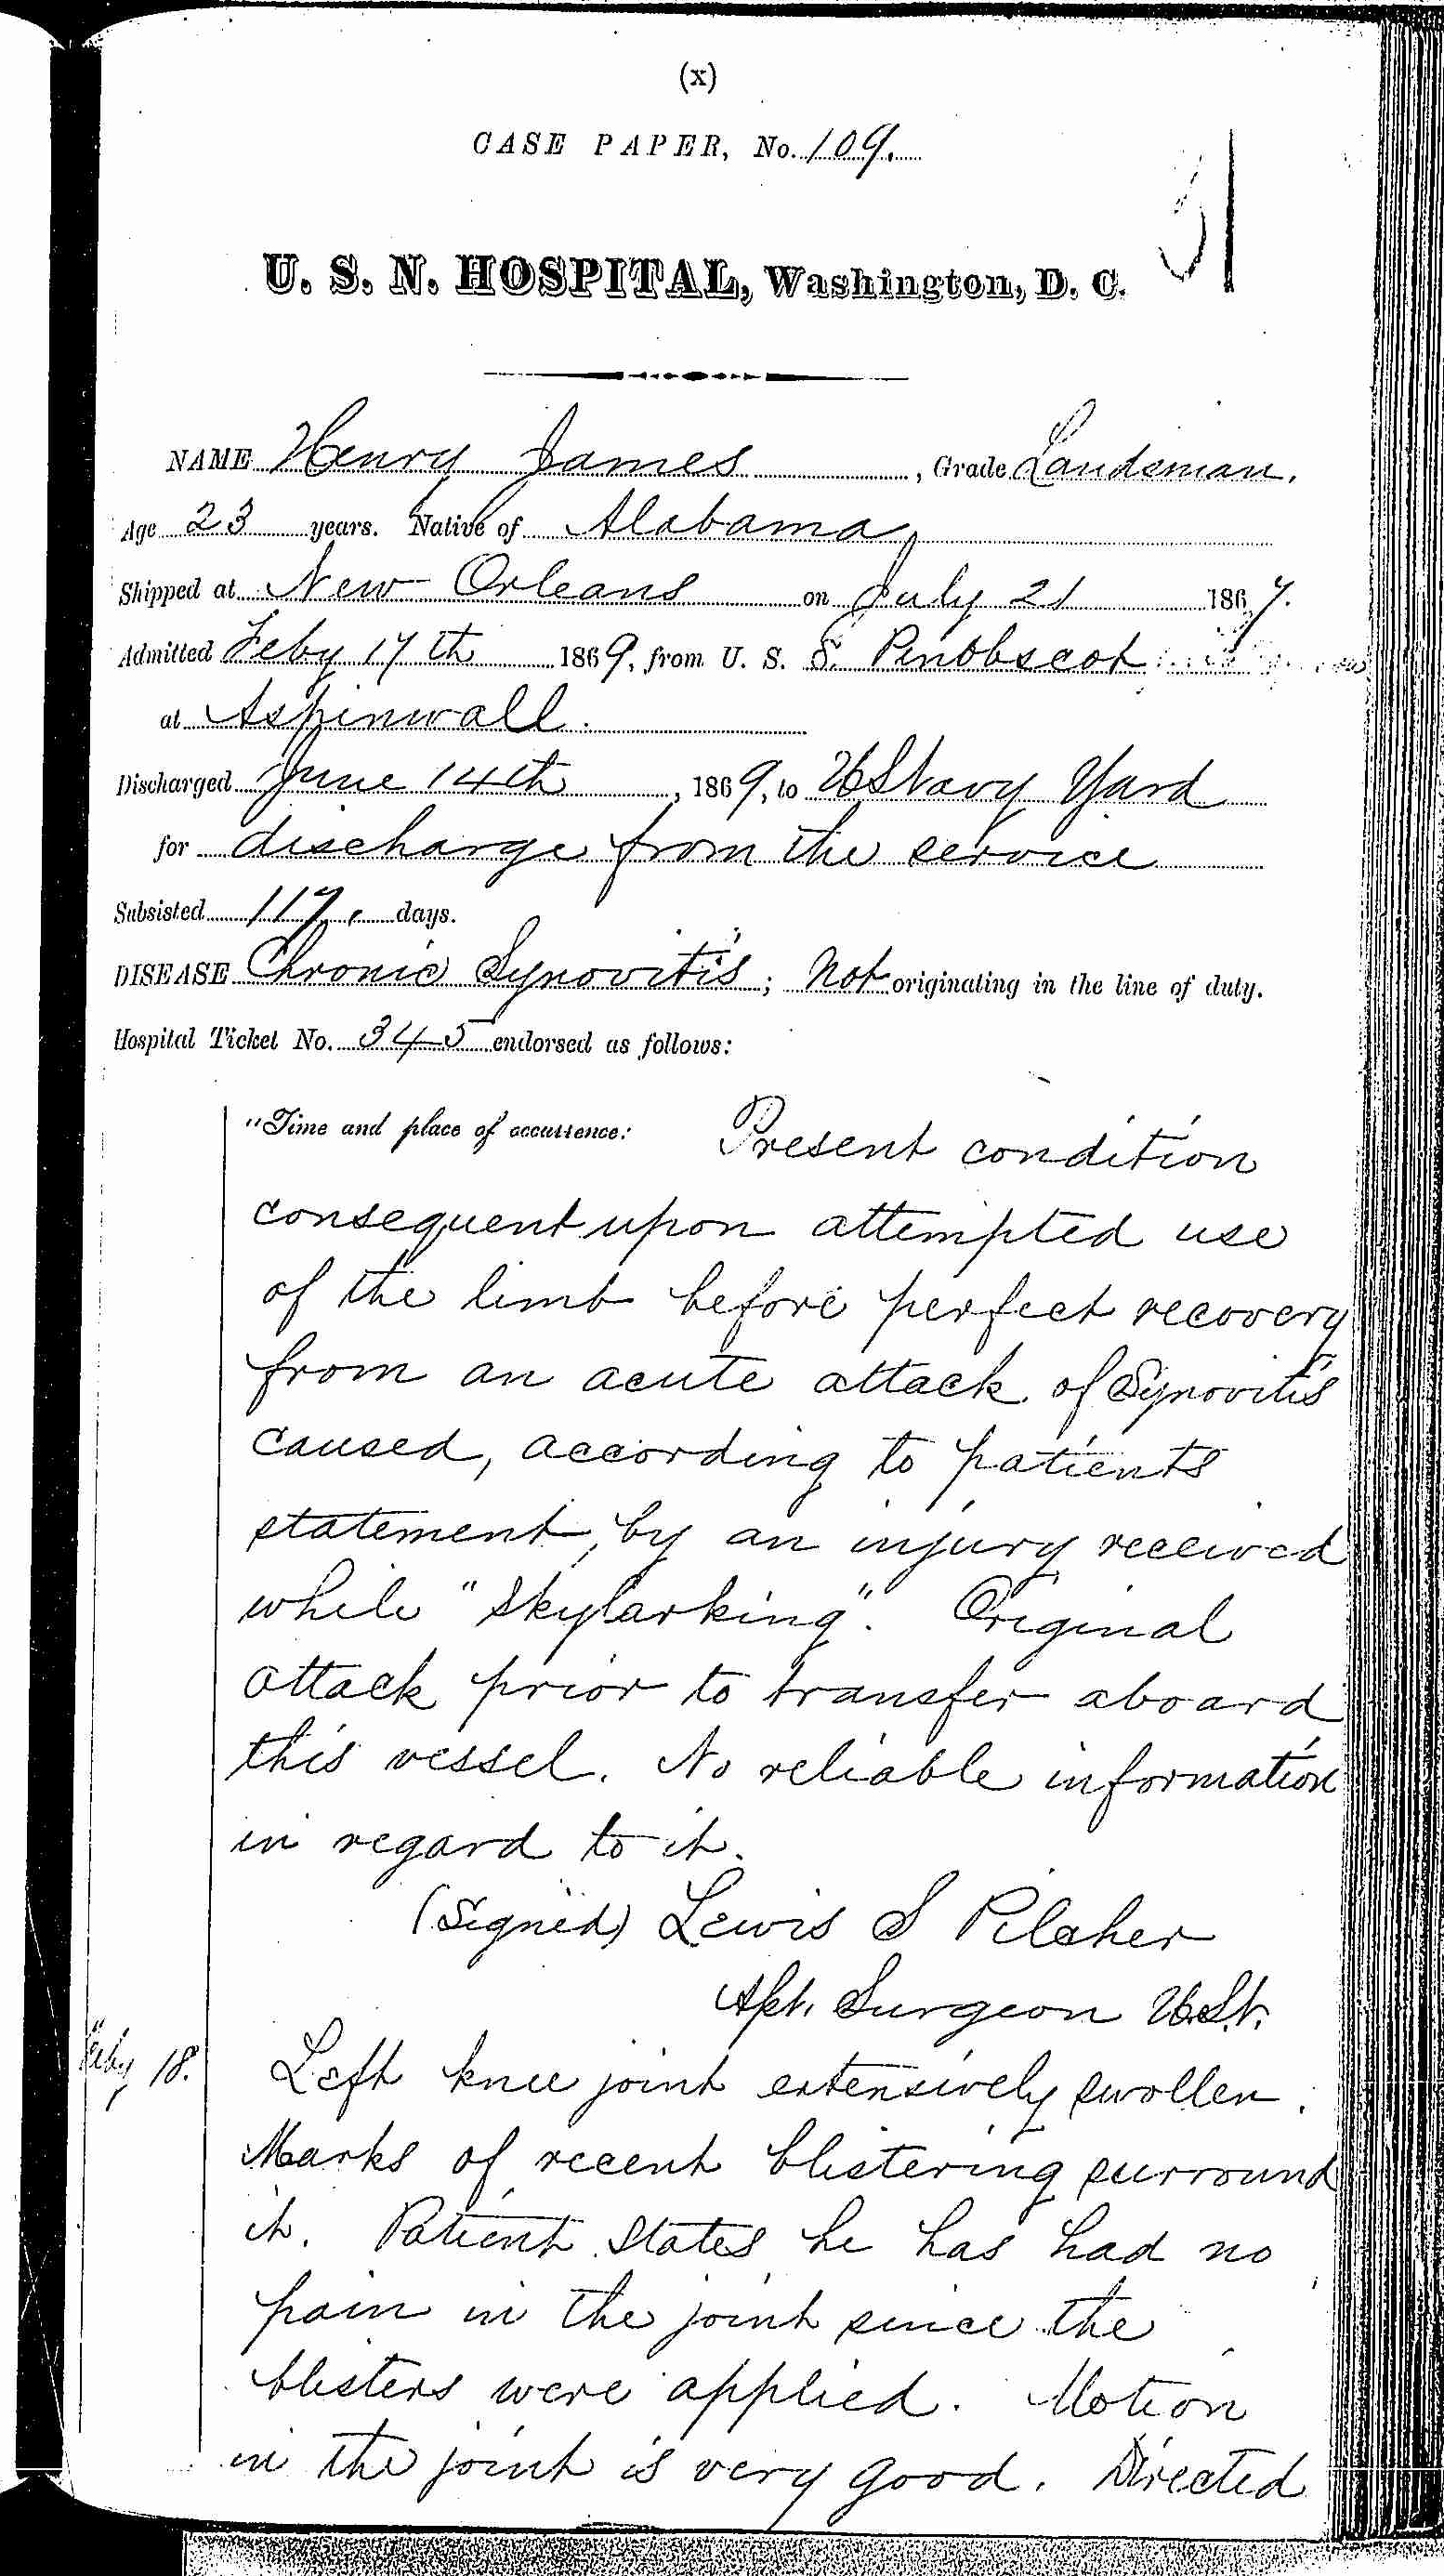 (x)
CASE PAPER, No. 109.
31
U. S. N. HOSPITAL, Washington, D. C.
NAME Henry James, Grade Landsman.
Age 23 years. Native of Alabama,
Shipped at New Orleans on July 21 1867.
Admitted Feby 17th 1869, from U. S. S. Penobscot
at Aspinwall.
Discharged June 14th, 1869, to U S Navy Yard
for discharge from the service
Subsisted 117, days.
DISEASE Chronic Synovitis; Not originating in the line of duty.
Hospital Ticket No. 345 endorsed as follows:
"Time and place of occurrence: Present condition
consequent upon attempted use
of the limb before perfect recovery
from an acute attack of Synovitis
caused, according to patients
statement, by an injury received
while "Skylarking". Original
attack prior to transfer aboard
this vessel. No reliable information
in regard to it.
(Signed) Lewis S Pilcher
Apt. Surgeon U.S.N.
Feby 18. Left knee joint extensively swollen.
Marks of recent blistering surround
it. Patient states he has had no
pain in the joint since the
blisters were applied. Motion
in the joint is very good. Directed